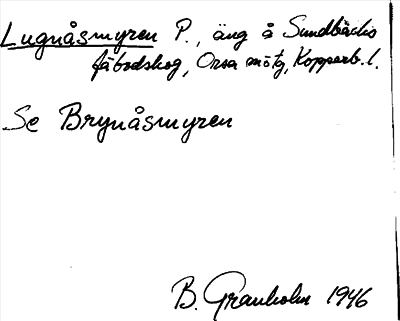 Lugnåsmyren P., äng å Sundbäcks
fäbodskog, Orsa mötg, Kopparb. l.
Se Brynåsmyren
B. Granholm 1946